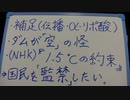 ・補足(伝播・α-リポ酸)
・ダムが〝空〟の怪
・(NHK)〝1.5℃の約束〟
・国民を監禁したい。